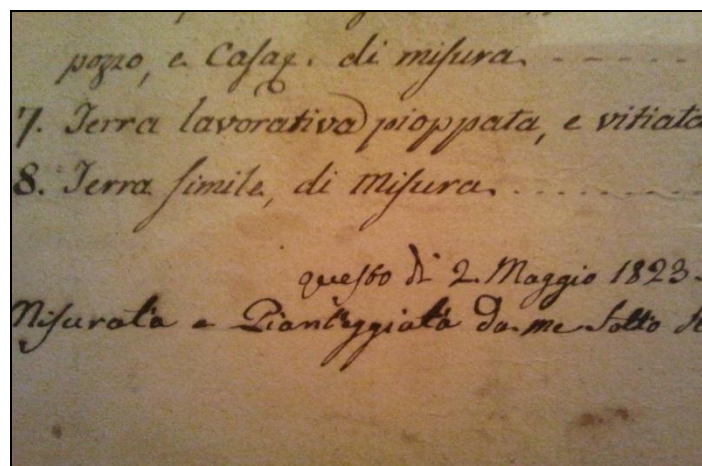 pozzo, e Casaz. di misura.
7. Terra lavorativa pioppata, e vitiata
8. Terra simile, di Misura.
questo dì 2. Maggio 1823.
Misurata e Pianteggiata da me Sotto